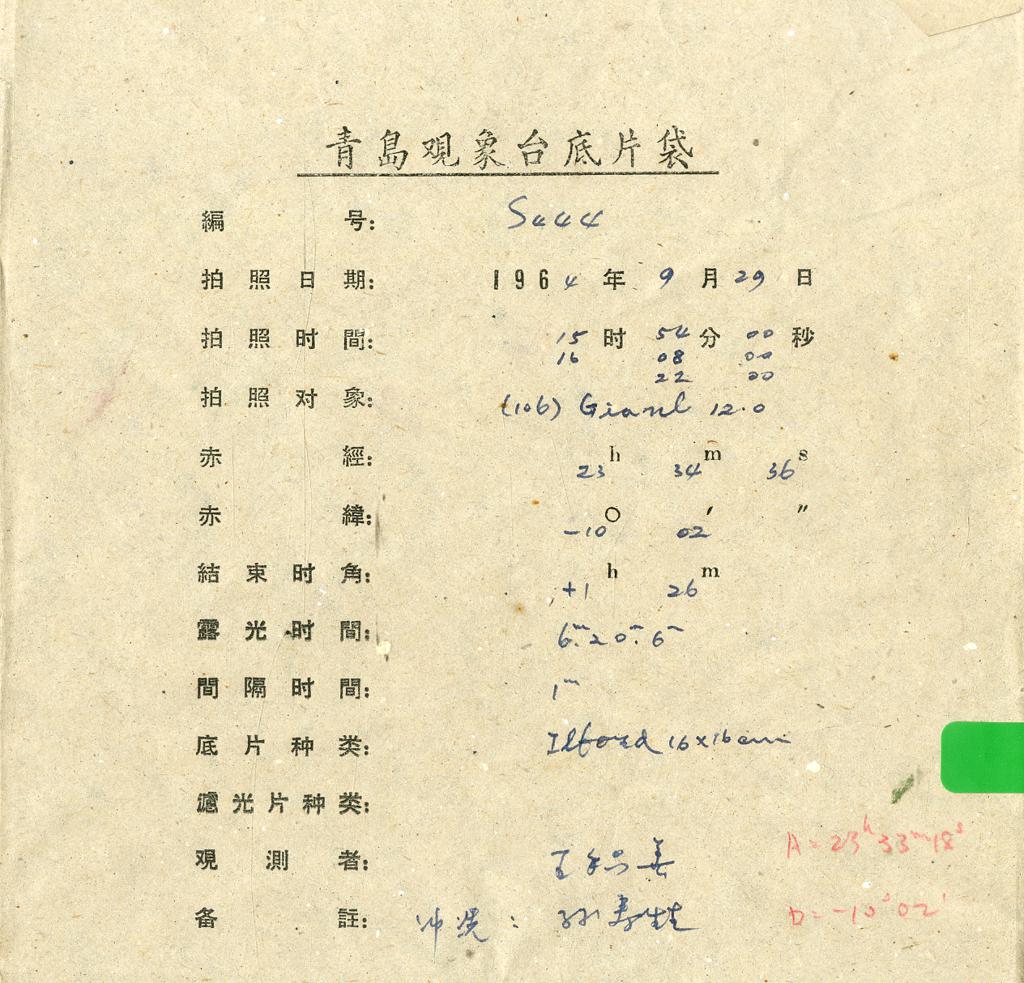 青島观象台底片袋
編号: S444
拍照日期: 1964年9月29日
拍照时間: 15时54分00秒
16 08 00
22 00
拍照对象: (106) Gianl 12.0
赤經: 23h 34m 36s
赤緯: -10° 02′ ″
結束时角: +1h 26m
露光时間: 6m. 20m. 6m
間隔时間: 1m
底片种类: Ilford 16x16cm
濾光片种类:
观測者: 王 善
A=23h33m18s
备註: 冲洗: 孙寿
D=-10°02′